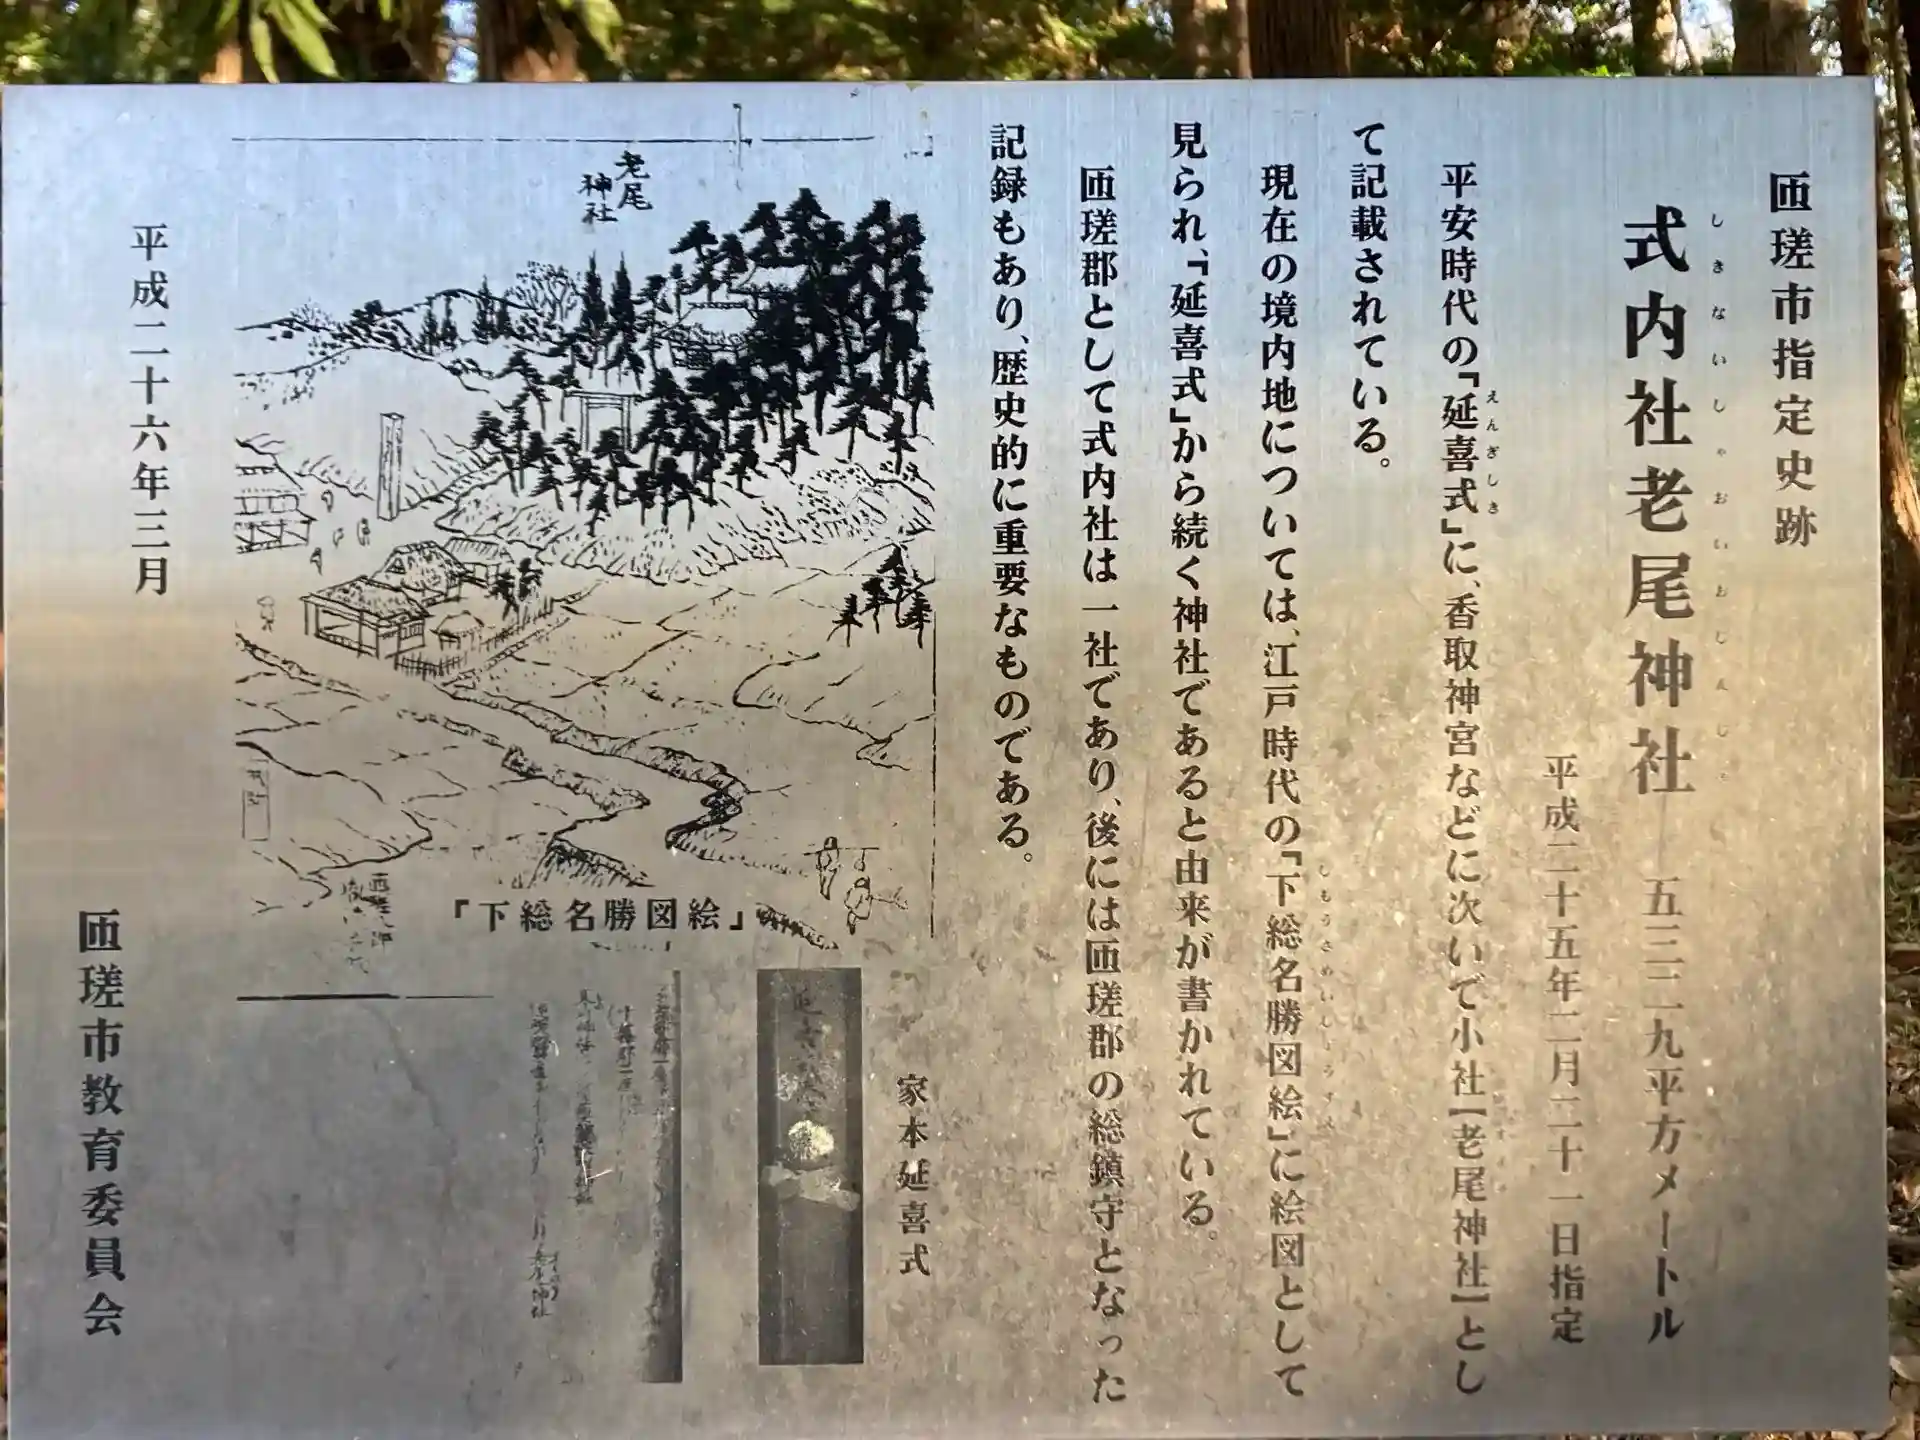 匝瑳市指定史跡
しきないしゃおいおじんじゃ
式内社老尾神社 五三二九平方メートル
平成二十五年二月二十一日指定
えんぎしき
平安時代の『延喜式』に、香取神宮などに次いで小社【老尾神社】とし
て記載されている。
しもうさめいしょうずえ
現在の境内地については、江戸時代の『下総名勝図絵』に絵図として
見られ、『延喜式』から続く神社であると由来が書かれている。
匝瑳郡として式内社は一社であり、後には匝瑳郡の総鎮守となった
記録もあり、歴史的に重要なものである。
老尾
神社
『下総名勝図絵』
家本延喜式
平成二十六年三月
匝瑳市教育委員会